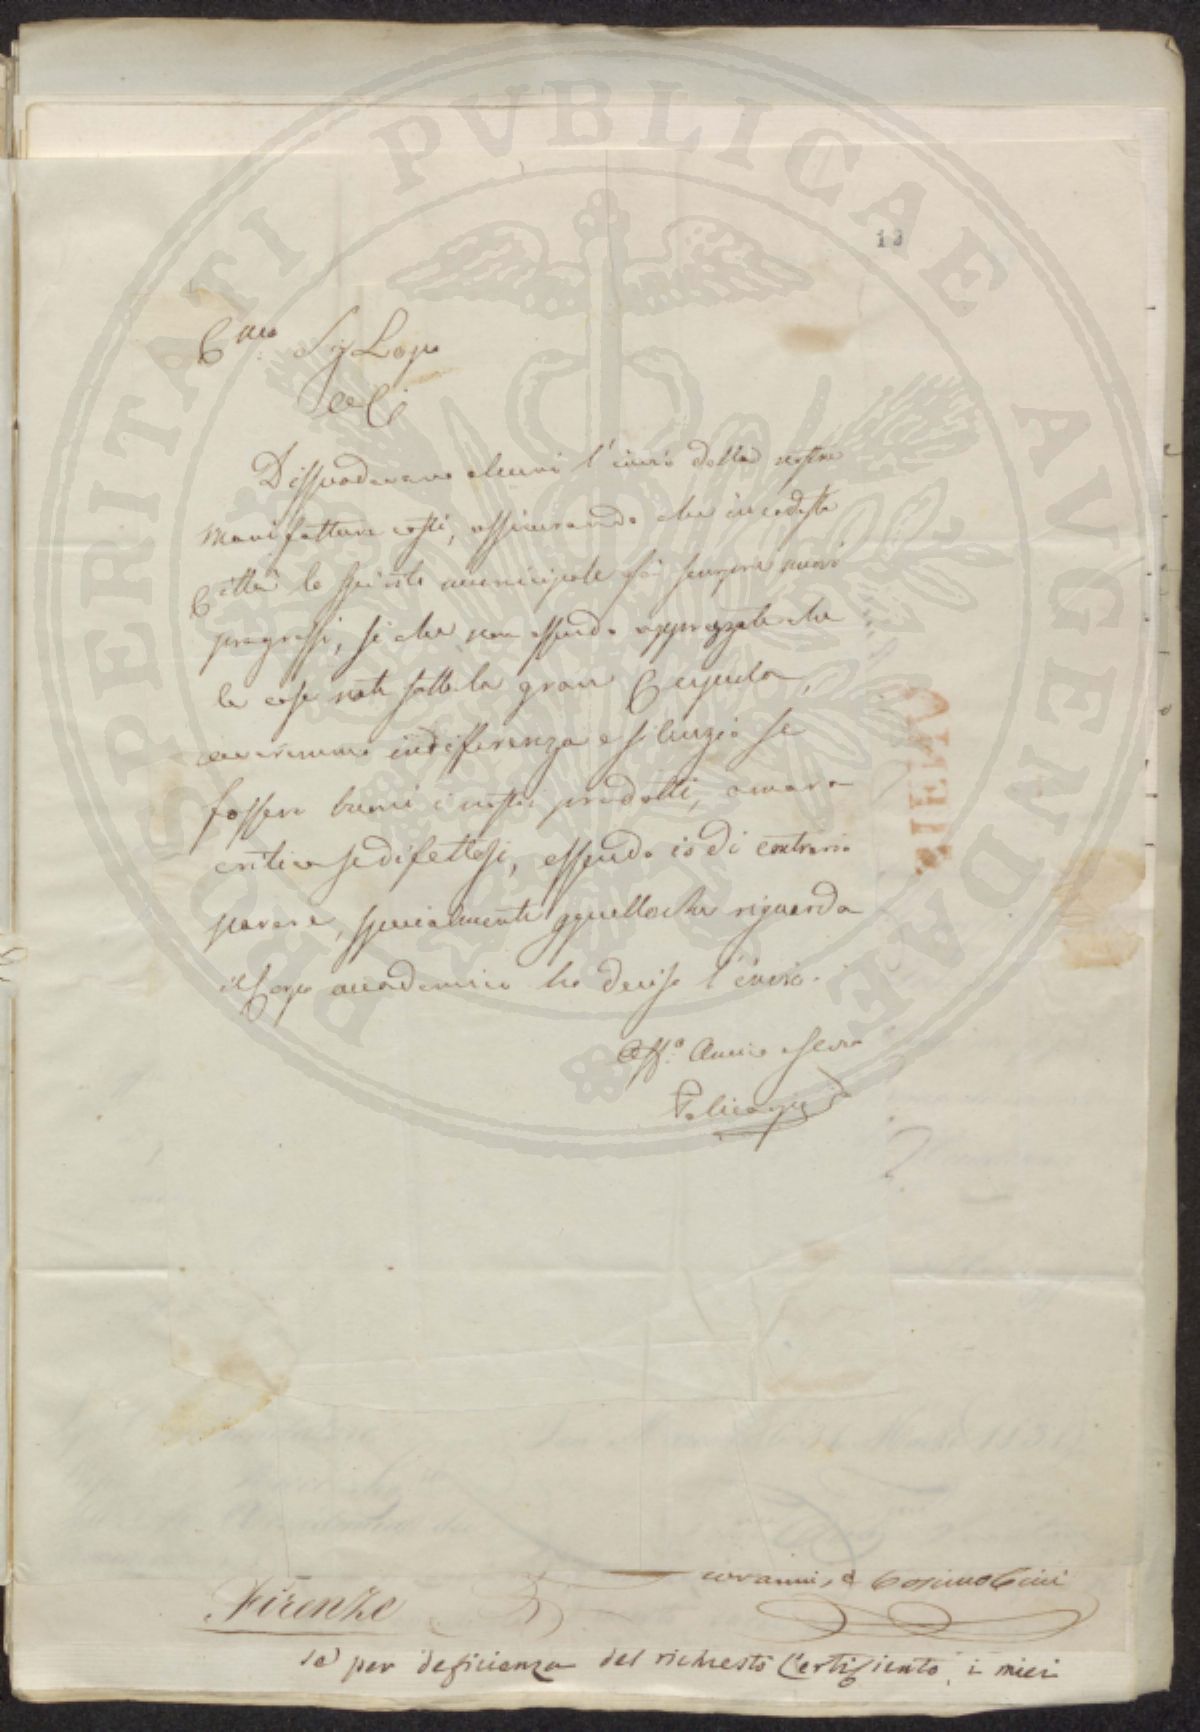 PROSPERITATI PVBLICAE AVGENDAE
13
C.mo Sig Lopo
Dissuadevano alcuni l'invio delle nostre
Manifatture costì, assicurando che in codesta
Città lo spirito municipale fà sempre nuovi
progressi, si che non essendo apprezzate che
le cose nate sotto la gran Cupola,
avremmo indifferenza e silenzio se
fossero buoni i nostri prodotti, amara
critica se difettosi, essendo io di contrario
parere, specialmente quello che riguarda
il Corpo accademico ho deciso l'invio.
Aff.o Amico e Serv
SIENA
Giovanni, e Cosimo Cini
Firenze
se per deficienza del richiesto Certificato, i miei